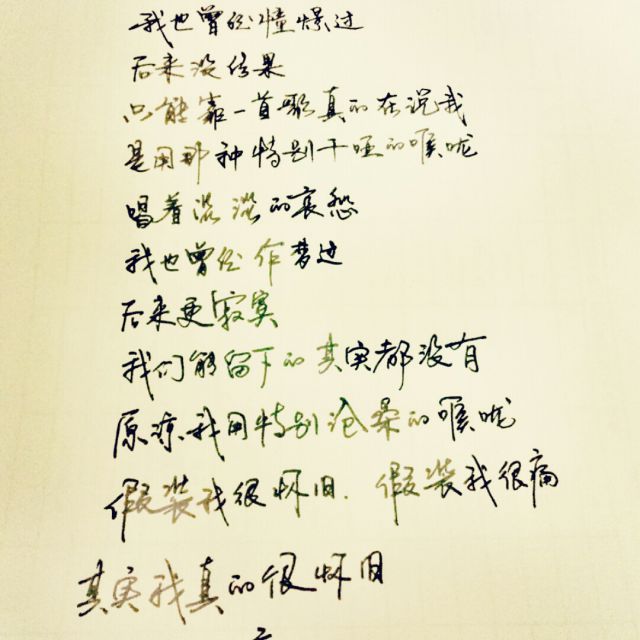 我也曾经憧憬过
后来没结果
只能靠一首歌真的在说我
是用那种特别干哑的喉咙
唱着淡淡的哀愁
我也曾经作梦过
后来更寂寞
我们能留下的其实都没有
原谅我用特别沧桑的喉咙
假装我很怀旧. 假装我很痛
其实我真的很怀旧